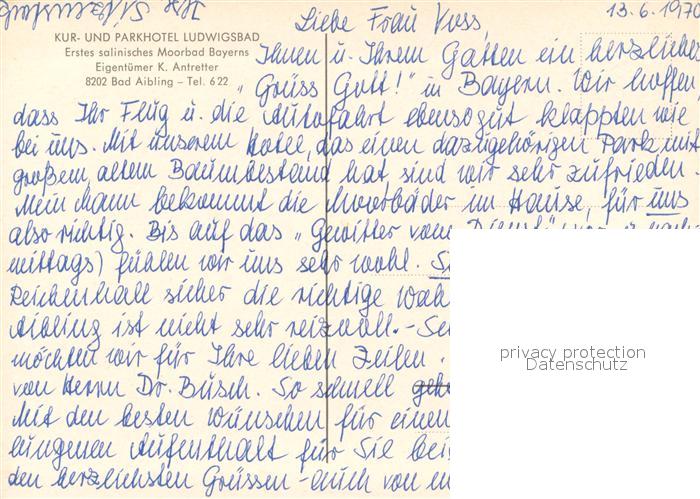 13.6.1970
Liebe Frau Kuss,
KUR- UND PARKHOTEL LUDWIGSBAD
Erstes salinisches Moorbad Bayerns
Eigentümer K. Antretter
8202 Bad Aibling – Tel. 6 22
Ihnen u. Ihrem Gatten ein herzliches
„Grüss Gott!" in Bayern. Wir hoffen
dass Ihr Flug u. die Autofahrt ebensogut klappten wie
bei uns. Mit unserem Hotel, das einen dazugehörigen Park mit
großem, altem Baumbestand hat, sind wir sehr zufrieden.
Mein Mann bekommt die Moorbäder im Hause, für uns
also richtig. Bis auf das „Gewitter vom
mittags) fühlen wir uns sehr wohl.
Reichenhall sicher die richtige Wah
Aibling ist nicht sehr reizvoll. - Se
möchten wir für Ihre lieben Zeilen.
von Herrn Dr. Busch. So schnell
Mit den besten Wünschen für einen
lungenen Aufenthalt für Sie bei
den herzlichsten Grüssen - auch von
privacy protection
Datenschutz